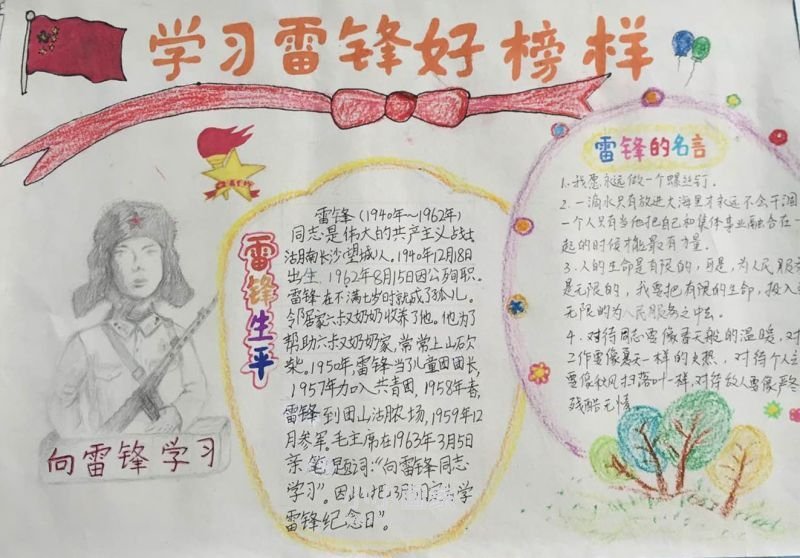 学习雷锋好榜样
向雷锋学习
雷锋生平
雷锋(1940年~1962年)
同志是伟大的共产主义战士
沽月南长沙望城人。1940年12月18日
出生,1962年8月15日因公殉职。
雷锋在不满七岁时就成了孤儿。
邻居家六叔奶奶收养了他。他为了
帮助六叔奶奶家,常常上山砍
柴。1950年,雷锋当了儿童团团长,
1957年加入共青团,1958年春,
雷锋到团山湖农场,1959年12
月参军。毛主席在1963年3月5日
亲笔题词:“向雷锋同志
学习”。因此,把3月5日定为学
雷锋纪念日”。
雷锋的名言
1.我愿永远做一个螺丝钉。
2.一滴水只有放进大海里才永远不会干涸
一个人只有当他把自己和集体事业融合在一
起的时候才能最有力量。
3.人的生命是有限的,可是,为人民服务
是无限的,我要把有限的生命,投入到
无限的为人民服务之中去。
4.对待同志要像春天般的温暖,对
工作要像夏天一样的火热,对待个人主
要像秋风扫落叶一样,对待敌人要像严冬
残酷无情